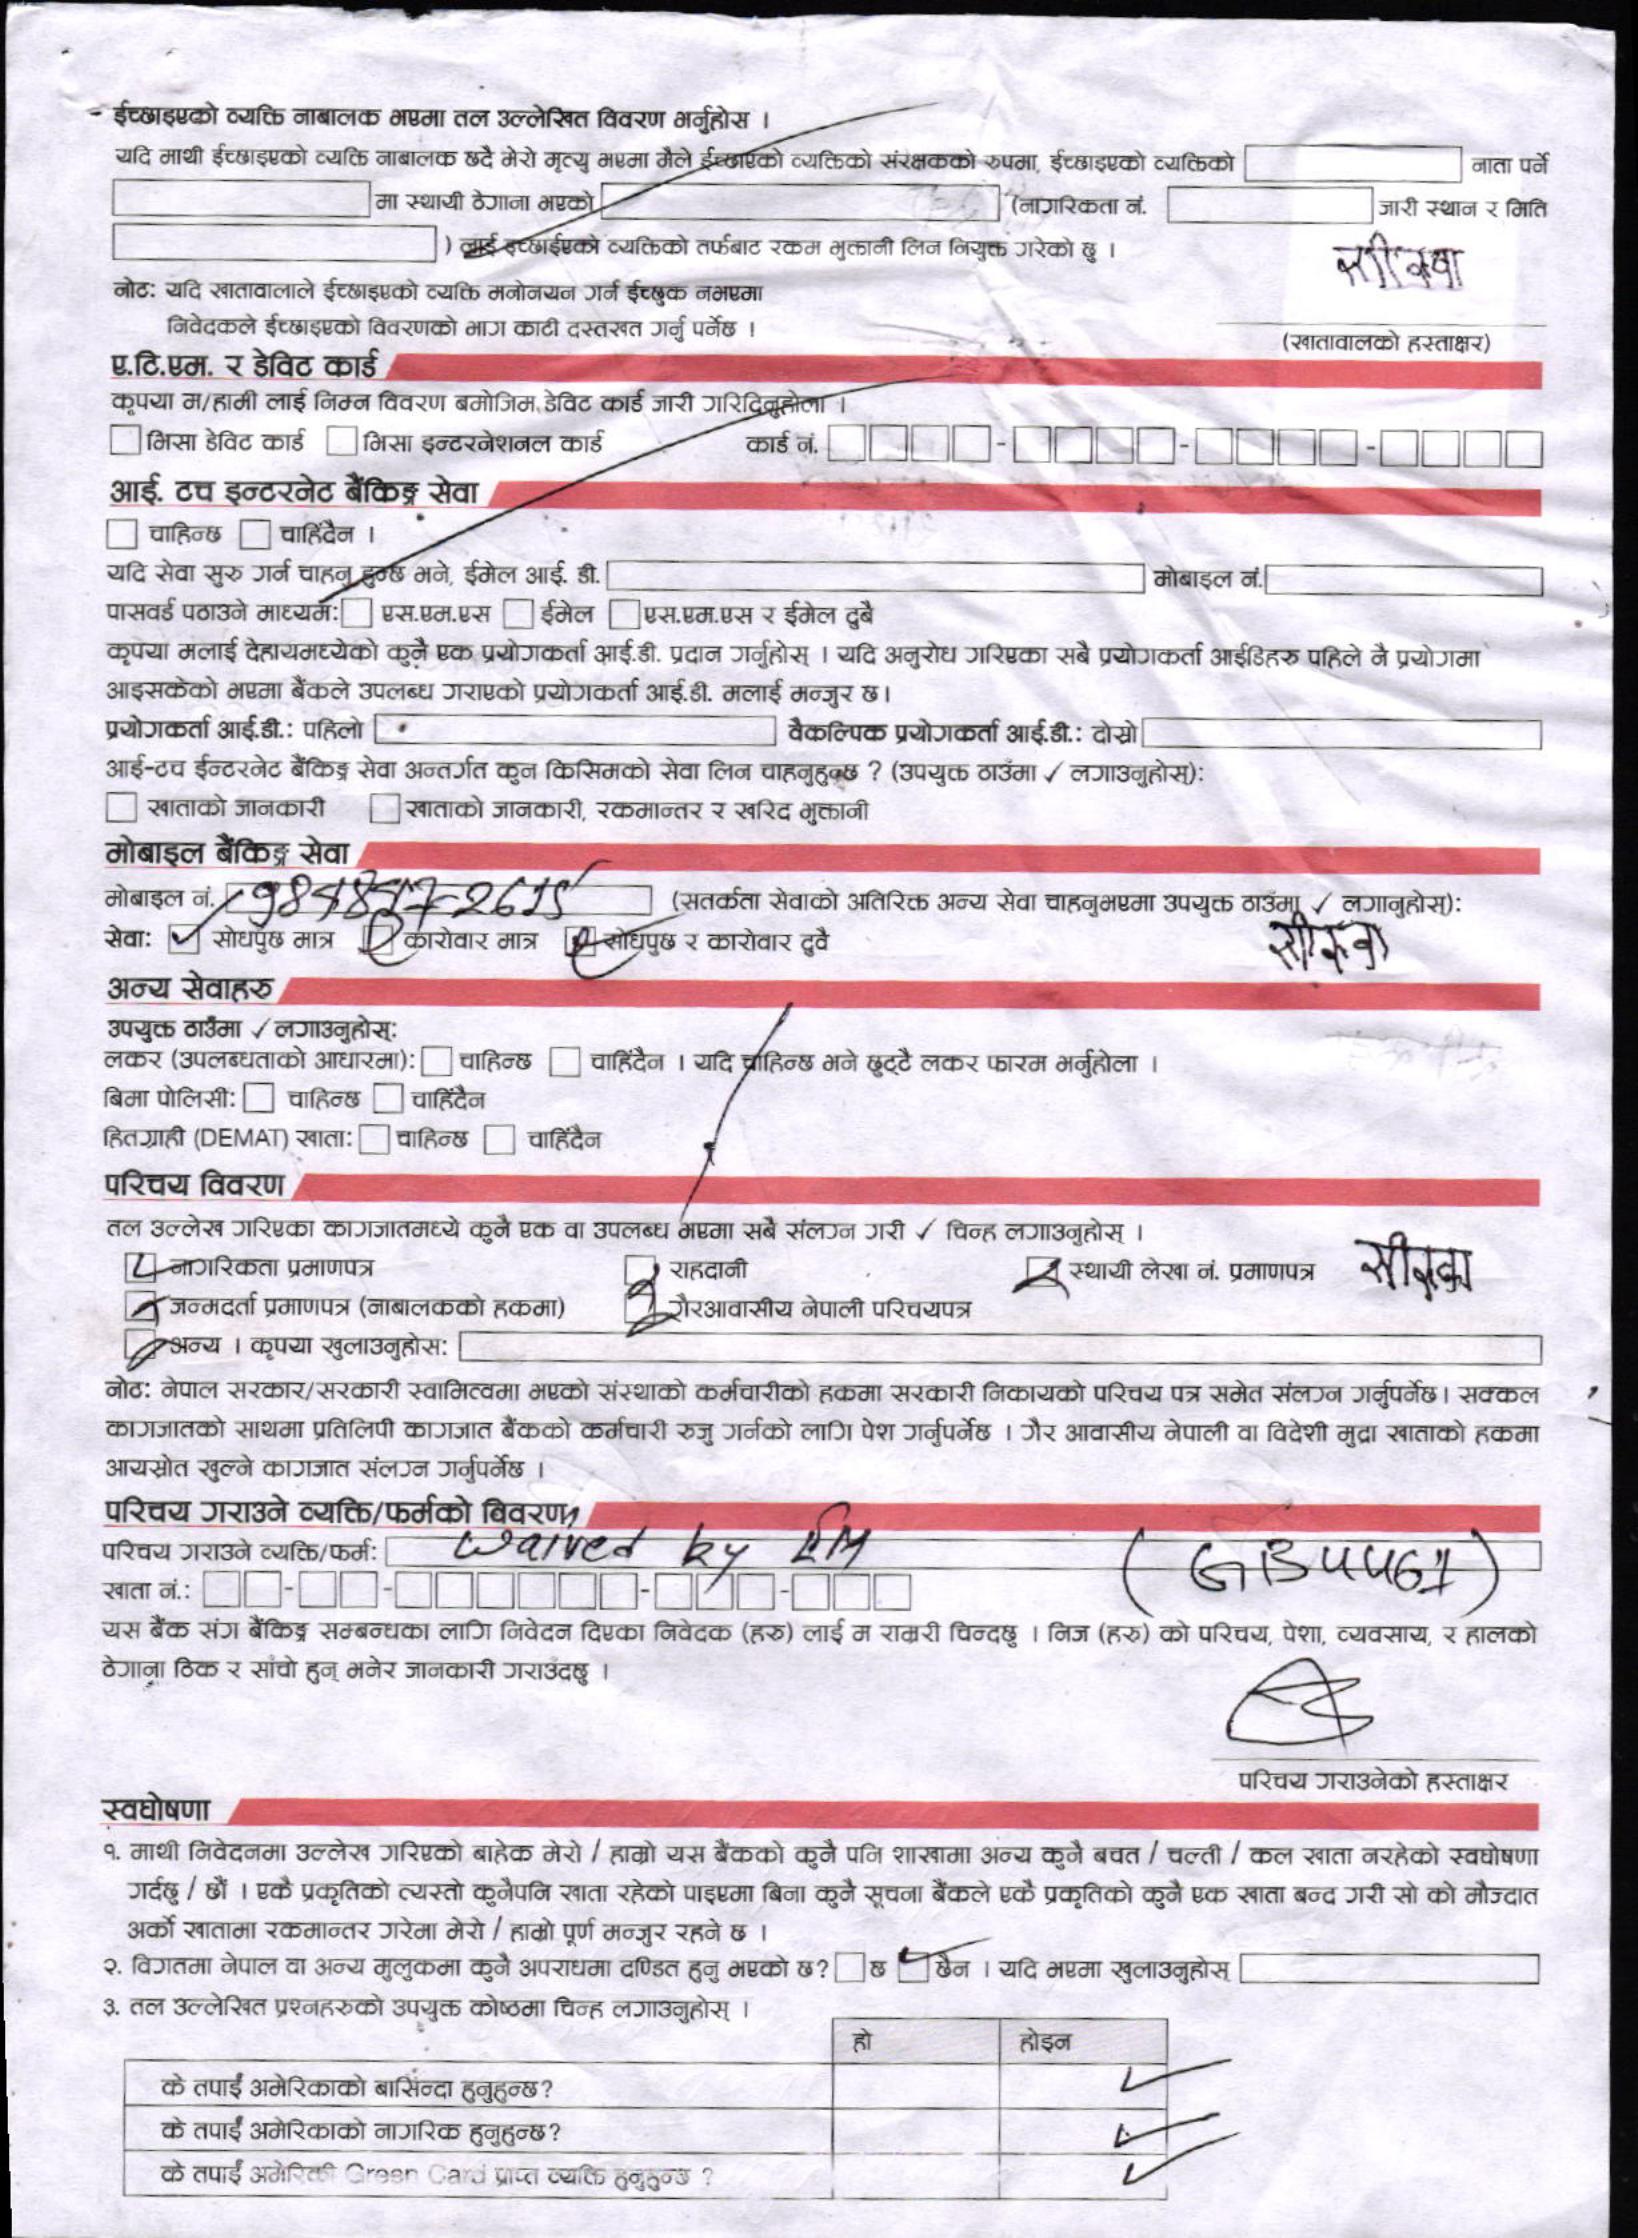 ईच्छाइएको व्यक्ति नाबालक भएमा तल उल्लेखित विवरण भर्नुहोस ।
यदि माथी ईच्छाइएको व्यक्ति नाबालक छदै मेरो मृत्यु भएमा मैले ईच्छाएको व्यक्तिको संरक्षकको रुपमा, ईच्छाइएको व्यक्तिको नाता पर्ने
मा स्थायी ठेगाना भएको (नागरिकता नं. जारी स्थान र मिति
) लाई इच्छाईएको व्यक्तिको तर्फबाट रकम भुक्तानी लिन नियुक्त गरेको छु ।
नोट: यदि खातावालाले ईच्छाइएको व्यक्ति मनोनयन गर्न ईच्छुक नभएमा
निवेदकले ईच्छाइएको विवरणको भाग काटी दस्तखत गर्नु पर्नेछ ।
(खातावालको हस्ताक्षर)
ए.टि.एम. र डेविट कार्ड
कृपया म/हामी लाई निम्न विवरण बमोजिम डेविट कार्ड जारी गरिदिनुहोला ।
भिसा डेविट कार्ड भिसा इन्टरनेशनल कार्ड कार्ड नं. - - -
आई. टच इन्टरनेट बैंकिङ्ग सेवा
चाहिन्छ चाहिंदैन ।
यदि सेवा सुरु गर्न चाहनु हुन्छ भने, ईमेल आई. डी. मोबाइल नं.
पासवर्ड पठाउने माध्यम: एस.एम.एस ईमेल एस.एम.एस र ईमेल दुबै
कृपया मलाई देहायमध्येको कुनै एक प्रयोगकर्ता आई.डी. प्रदान गर्नुहोस् । यदि अनुरोध गरिएका सबै प्रयोगकर्ता आईडिहरु पहिले नै प्रयोगमा
आइसकेको भएमा बैंकले उपलब्ध गराएको प्रयोगकर्ता आई.डी. मलाई मन्जुर छ।
प्रयोगकर्ता आई.डी.: पहिलो वैकल्पिक प्रयोगकर्ता आई.डी.: दोस्रो
आई-टच ईन्टरनेट बैंकिङ्ग सेवा अन्तर्गत कुन किसिमको सेवा लिन चाहनुहुन्छ ? (उपयुक्त ठाउँमा ✓ लगाउनुहोस्):
खाताको जानकारी खाताको जानकारी, रकमान्तर र खरिद भुक्तानी
मोबाइल बैंकिङ्ग सेवा
मोबाइल नं. (सतर्कता सेवाको अतिरिक्त अन्य सेवा चाहनुभएमा उपयुक्त ठाउँमा ✓ लगानुहोस्):
सेवा: सोधपुछ मात्र कारोवार मात्र सोधपुछ र कारोवार दुवै
अन्य सेवाहरु
उपयुक्त ठाउँमा ✓ लगाउनुहोस्:
लकर (उपलब्धताको आधारमा): चाहिन्छ चाहिंदैन । यदि चाहिन्छ भने छुट्टै लकर फारम भर्नुहोला ।
बिमा पोलिसी: चाहिन्छ चाहिंदैन
हितग्राही (DEMAT) खाता: चाहिन्छ चाहिंदैन
परिचय विवरण
तल उल्लेख गरिएका कागजातमध्ये कुनै एक वा उपलब्ध भएमा सबै संलग्न गरी ✓ चिन्ह लगाउनुहोस् ।
नागरिकता प्रमाणपत्र राहदानी स्थायी लेखा नं. प्रमाणपत्र
जन्मदर्ता प्रमाणपत्र (नाबालकको हकमा) गैरआवासीय नेपाली परिचयपत्र
अन्य । कृपया खुलाउनुहोस:
नोट: नेपाल सरकार/सरकारी स्वामित्वमा भएको संस्थाको कर्मचारीको हकमा सरकारी निकायको परिचय पत्र समेत संलग्न गर्नुपर्नेछ। सक्कल
कागजातको साथमा प्रतिलिपी कागजात बैंकको कर्मचारी रुजु गर्नको लागि पेश गर्नुपर्नेछ । गैर आवासीय नेपाली वा विदेशी मुद्रा खाताको हकमा
आयस्रोत खुल्ने कागजात संलग्न गर्नुपर्नेछ ।
परिचय गराउने व्यक्ति/फर्मको बिवरण
परिचय गराउने व्यक्ति/फर्म: waived by
खाता नं.: - - - -
यस बैंक संग बैंकिङ्ग सम्बन्धका लागि निवेदन दिएका निवेदक (हरु) लाई म राम्ररी चिन्दछु । निज (हरु) को परिचय, पेशा, व्यवसाय, र हालको
ठेगाना ठिक र साँचो हुन् भनेर जानकारी गराउँदछु ।
परिचय गराउनेको हस्ताक्षर
स्वघोषणा
१. माथी निवेदनमा उल्लेख गरिएको बाहेक मेरो / हाम्रो यस बैंकको कुनै पनि शाखामा अन्य कुनै बचत / चल्ती / कल खाता नरहेको स्वघोषणा
गर्दछु / छौं । एकै प्रकृतिको त्यस्तो कुनैपनि खाता रहेको पाइएमा बिना कुनै सूचना बैंकले एकै प्रकृतिको कुनै एक खाता बन्द गरी सो को मौज्दात
अर्को खातामा रकमान्तर गरेमा मेरो / हाम्रो पूर्ण मन्जुर रहने छ ।
२. विगतमा नेपाल वा अन्य मुलुकमा कुनै अपराधमा दण्डित हुनु भएको छ? छ छैन । यदि भएमा खुलाउनुहोस्
३. तल उल्लेखित प्रश्नहरुको उपयुक्त कोष्ठमा चिन्ह लगाउनुहोस् ।
हो होइन
के तपाईं अमेरिकाको बासिन्दा हुनुहुन्छ?
के तपाईं अमेरिकाको नागरिक हुनुहुन्छ?
के तपाईं अमेरिकी Green Card प्राप्त व्यक्ति हुनुहुन्छ ?